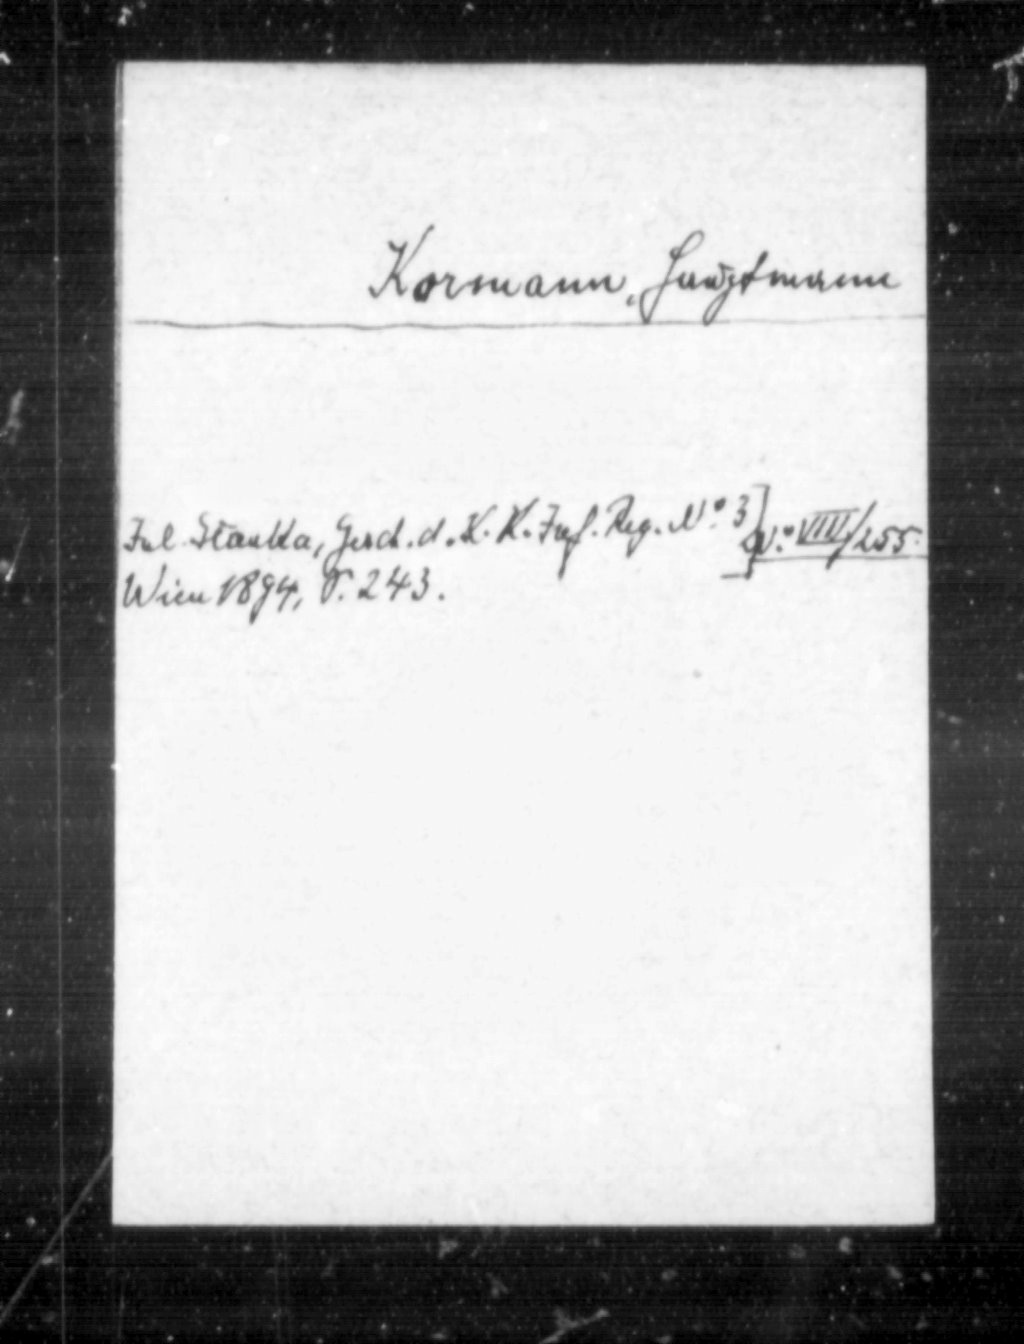 Kormann, Hauptmann
Jul. Stanka, Gesch. d. K. K. Inf. Reg. No. 3] No. VIII/255.
Wien 1894, S. 243.